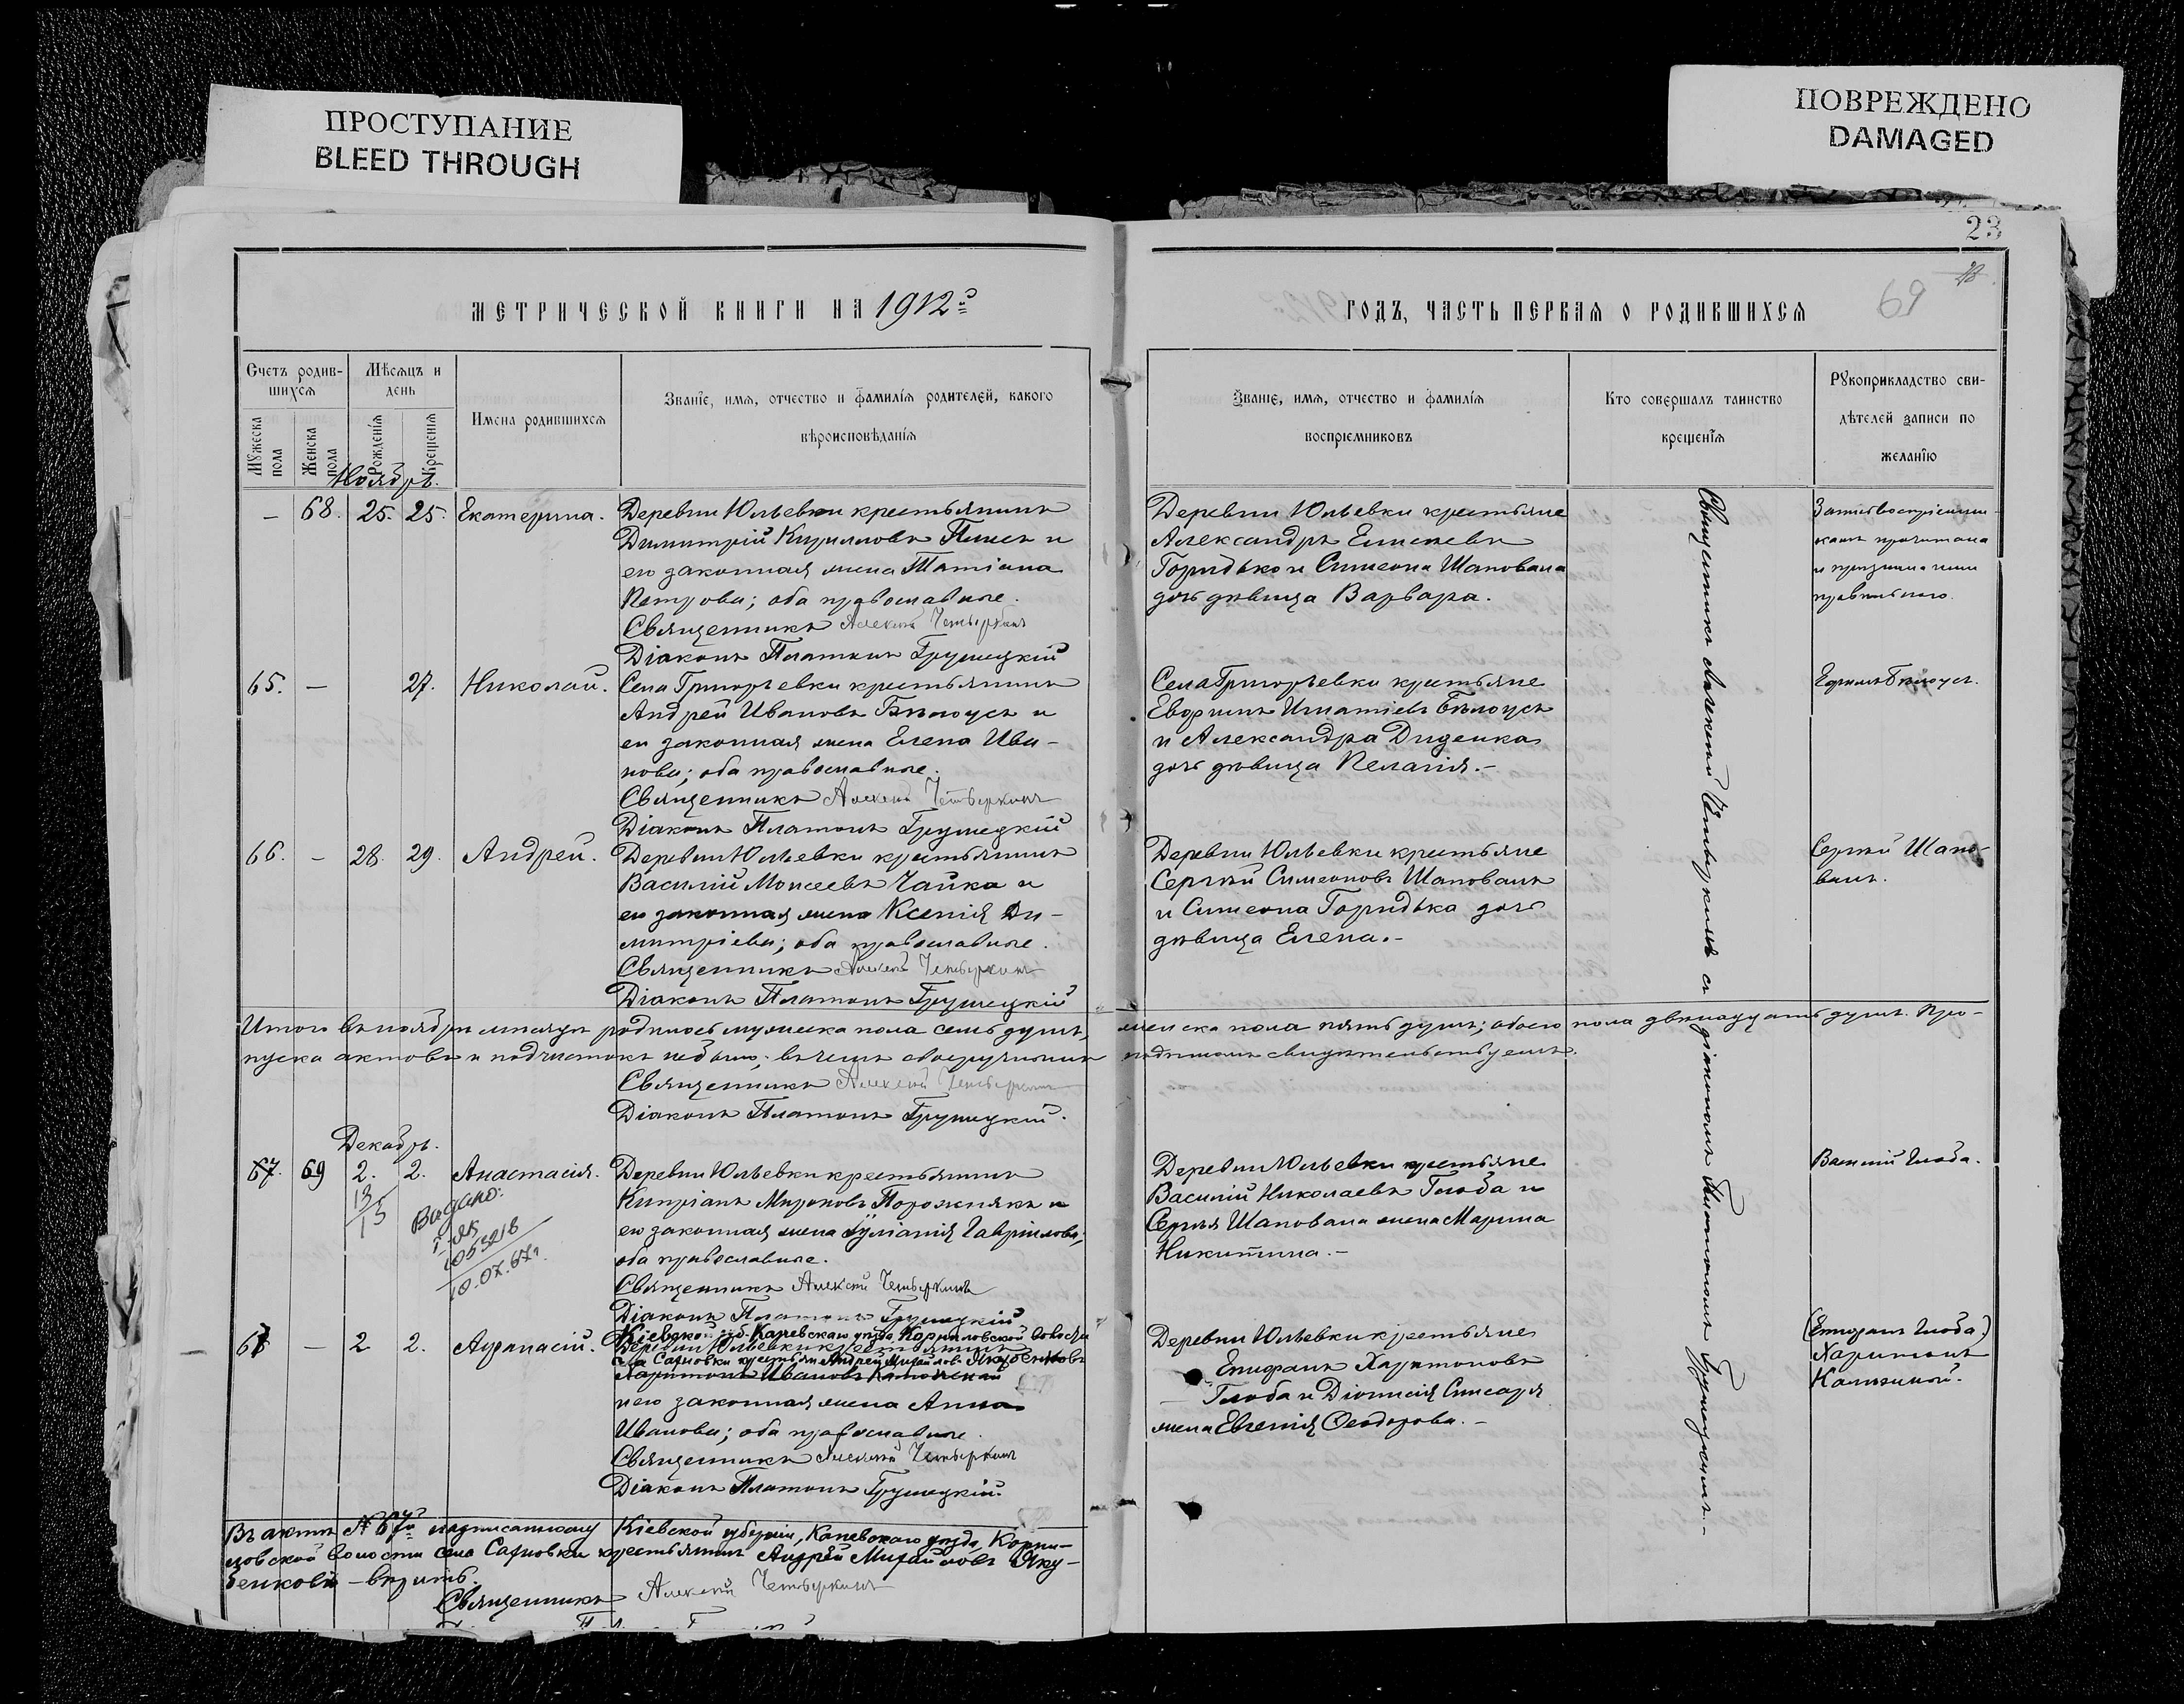 ПРОСТУПАНИЕ
BLEED THROUGH
ПОВРЕЖДЕНО
DAMAGED
23
69
МЕТРИЧЕСКОЙ КНИГИ НА 1912й
ГОДЪ, ЧАСТЬ ПЕРВАЯ О РОДИВШИХСЯ
Счетъ родив-
шихся
Мѣсяцъ и
день
Мужеска
пола
Женска
пола
Рожденія
Крещенія
Имена родившихся
Званіе, имя, отчество и фамилія родителей, какого
вѣроисповѣданія
Званіе, имя, отчество и фамилія
воспріемниковъ
Кто совершалъ таинство
крещенія
Рукоприкладство сви-
дѣтелей записи по
желанію
Ноябрь.
– 68. 25. 25. Екатерина.
Деревни Юльевки крестьянинъ
Димитрій Кирилловъ и
его законная жена Татіана
Петрова; оба православные.
Священникъ Алексій Четверкинъ
Діаконъ Платонъ Грушецкій
Деревни Юльевки крестьяне
Александръ Елисеевъ
Горидько и Симеона Шаповала
дочь дѣвица Варвара.
прочитана
и признана ими
правильною.
65. – 27. Николай.
Села Григорьевки крестьянинъ
Андрей Ивановъ Бѣлоусъ и
его законная жена Елена Ива-
нова; оба православные.
Священникъ Алексій Четверкинъ
Діаконъ Платонъ Грушецкій
Села Григорьевки крестьяне
Евфимъ Игнатіевъ Бѣлоусъ
и Александра Диденка
дочь дѣвица Пелагія.–
Ефимъ Бѣлоусъ.
66. – 28. 29. Андрей.
Деревни Юльевки крестьянинъ
Василій Моисеевъ Чайка и
его законная жена Ксенія Ди-
митріева; оба православные.
Священникъ Алексій Четверкинъ
Діаконъ Платонъ Грушецкій
Деревни Юльевки крестьяне
Сергѣй Симеоновъ Шаповалъ
и Симеона Горидька дочь
дѣвица Елена.–
Сергѣй Шапо-
валъ.
Итого въ ноябрѣ мѣсяцѣ родилось мужеска пола семь душъ, женска пола пять душъ; обоего пола двѣнадцать душъ. Про-
пуска актовъ и подчистокъ не было; въ чемъ своеручнымъ подписомъ свидѣтельствуемъ.
Священникъ Алексій Четверкинъ
Діаконъ Платонъ Грушецкій.
Декабрь.
67. 69 2. 2. Анастасія.
13/15
Видано:
053218
10.07.67г.
Деревни Юльевки крестьянинъ
Кипріанъ Мироновъ Порожнякъ и
его законная жена Іуліанія Гавріилова;
оба православные.
Священникъ Алексій Четверкинъ
Діаконъ Платонъ Грушецкій
Деревни Юльевки крестьяне
Василій Николаевъ Глоба и
Сергѣя Шаповала жена Марина
Никитина.–
Василій Глоба.
67 – 2 2. Афанасій.
Кіевской губ. Каневскаго уѣзда, Корниловской волости
Деревни Юльевки крестьянинъ
села Сахновки крестьян. Андрей Михайловъ Якубенковъ
Харитонъ Ивановъ
и его законная жена Анна
Иванова; оба православные.
Священникъ Алексій Четверкинъ
Діаконъ Платонъ Грушецкій.
Деревни Юльевки крестьяне
Епифанъ Харитоновъ
Глоба и Діонисія Слисаря
жена Евгенія Ѳеодорова.–
(Епифанъ Глоба)
Харитонъ
Священникъ Алексій Четверкинъ съ діакономъ Платономъ Грушецкимъ.–
Въ актѣ № 67м надписанному Кіевской губерніи, Каневскаго уѣзда, Корни-
ловской волости села Сахновки крестьянинъ Андрей Михайловъ Яку-
бенковъ – вѣрить.
Священникъ Алексій Четверкинъ